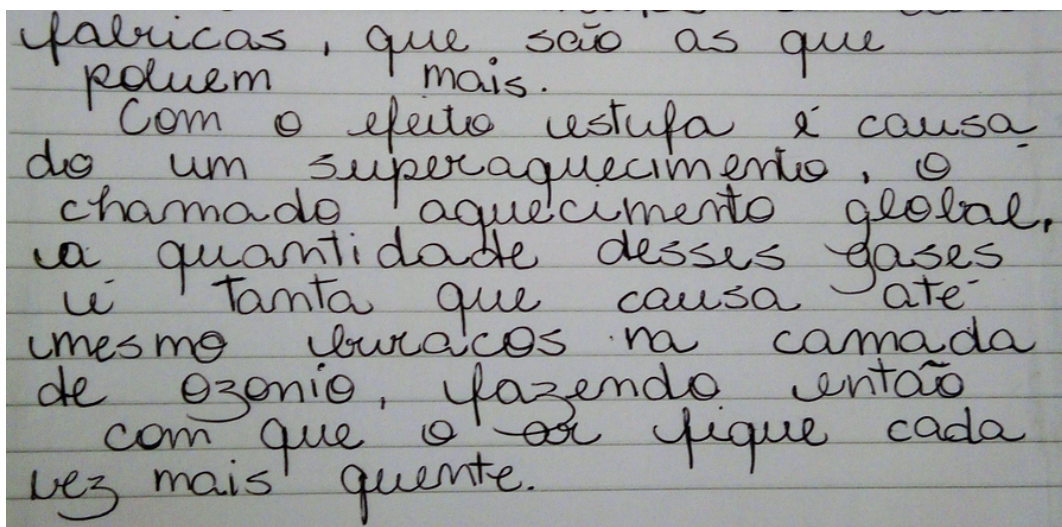 fabricas, que são as que
poluem mais.
Com o efeito estufa é causa
do um superaquecimento, o
chamado aquecimento global,
a quantidade desses gases
é tanta que causa até
mesmo buracos na camada
de ozonio, fazendo então
com que o ar fique cada
vez mais quente.